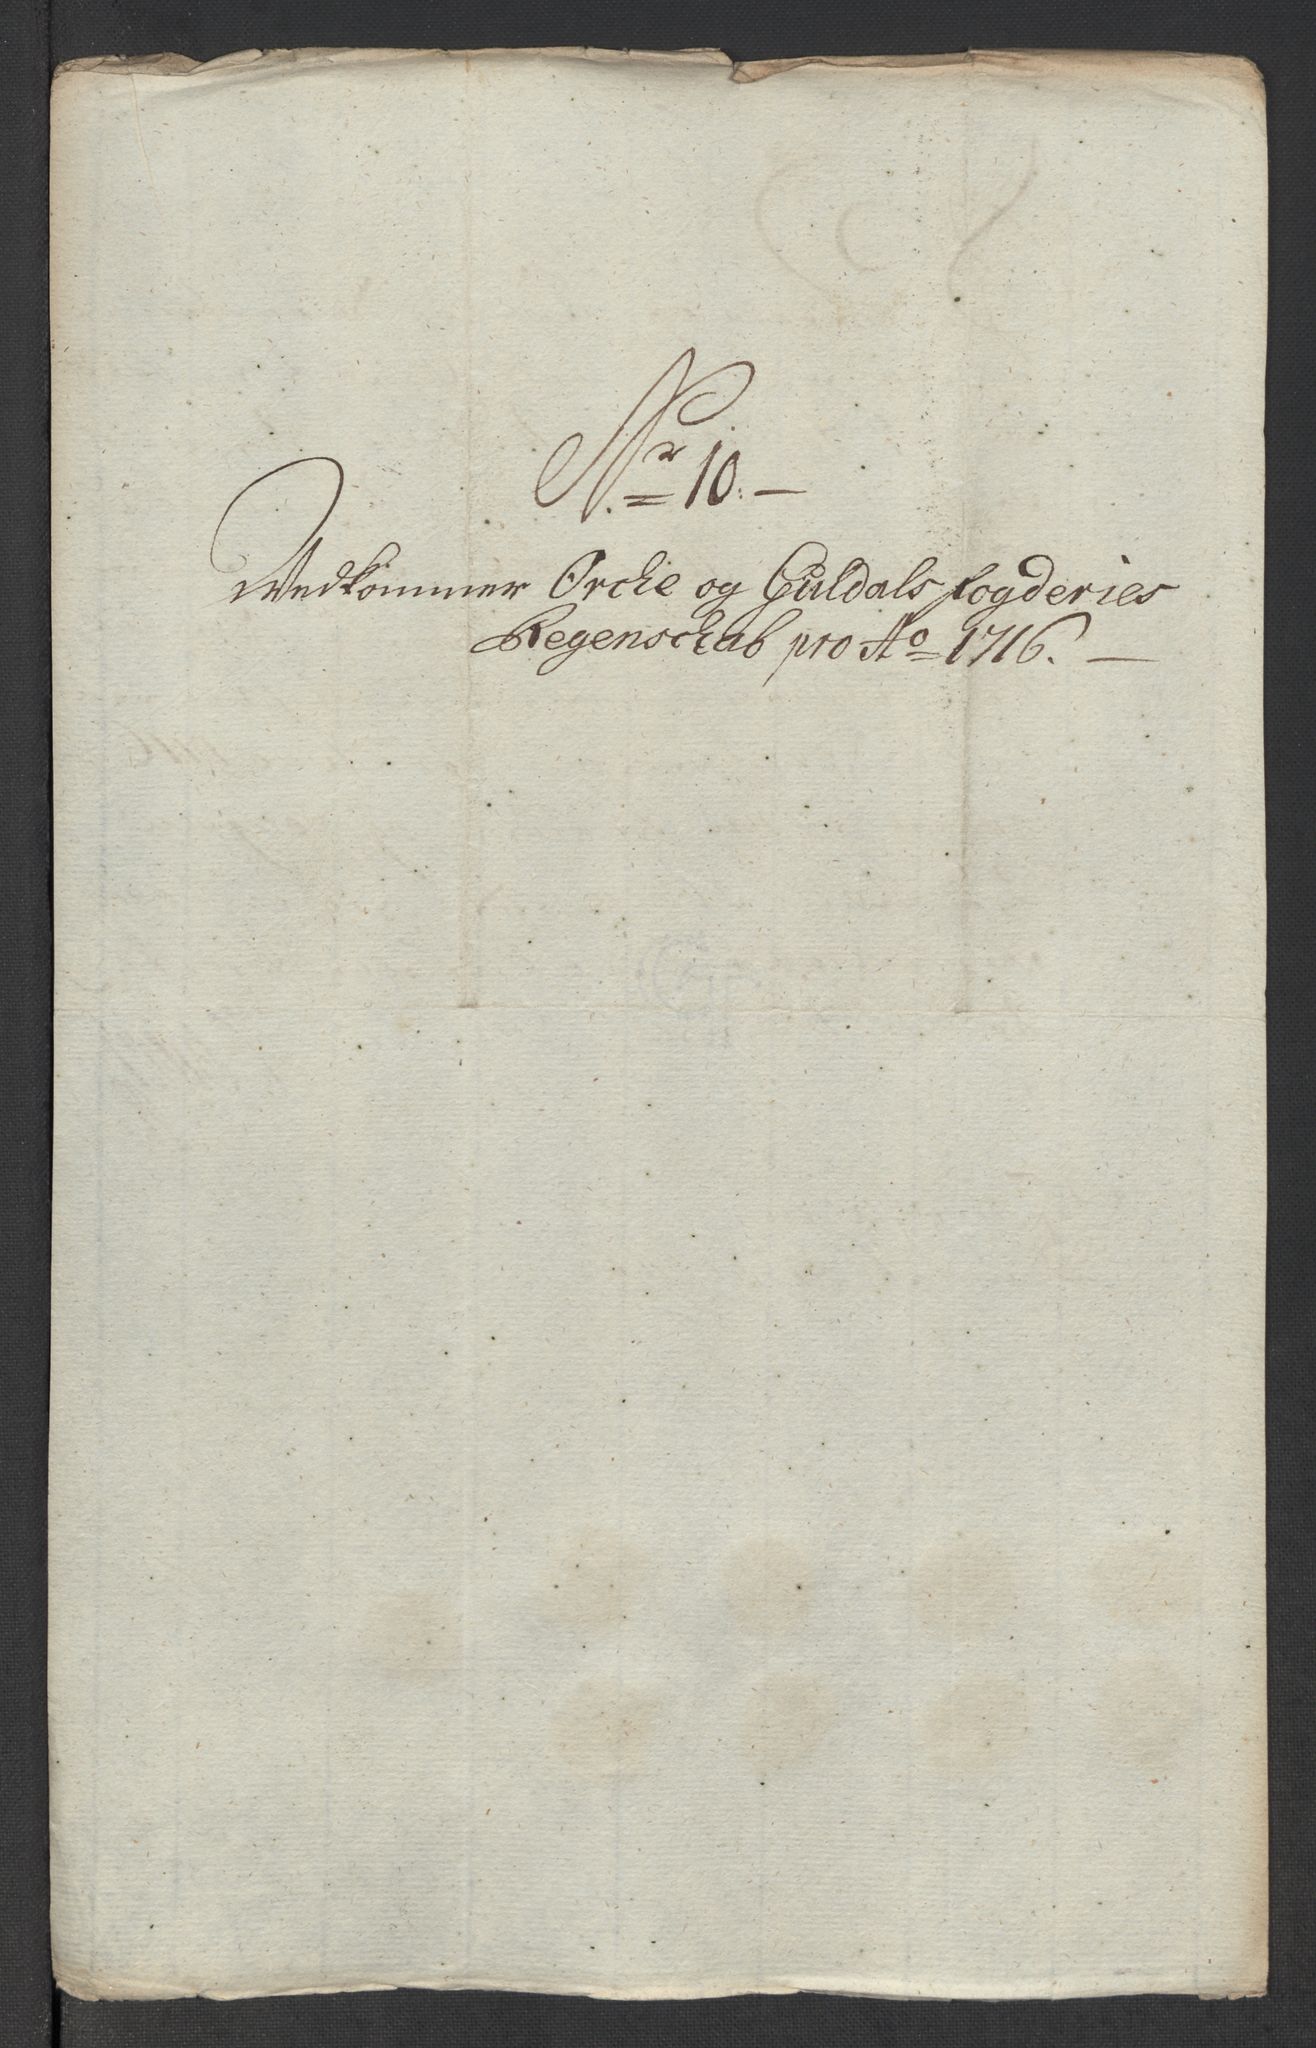 Nr 10. —
Vedkommer Orche og Guldals fogderies
Regenschab pro Ao 1716. —